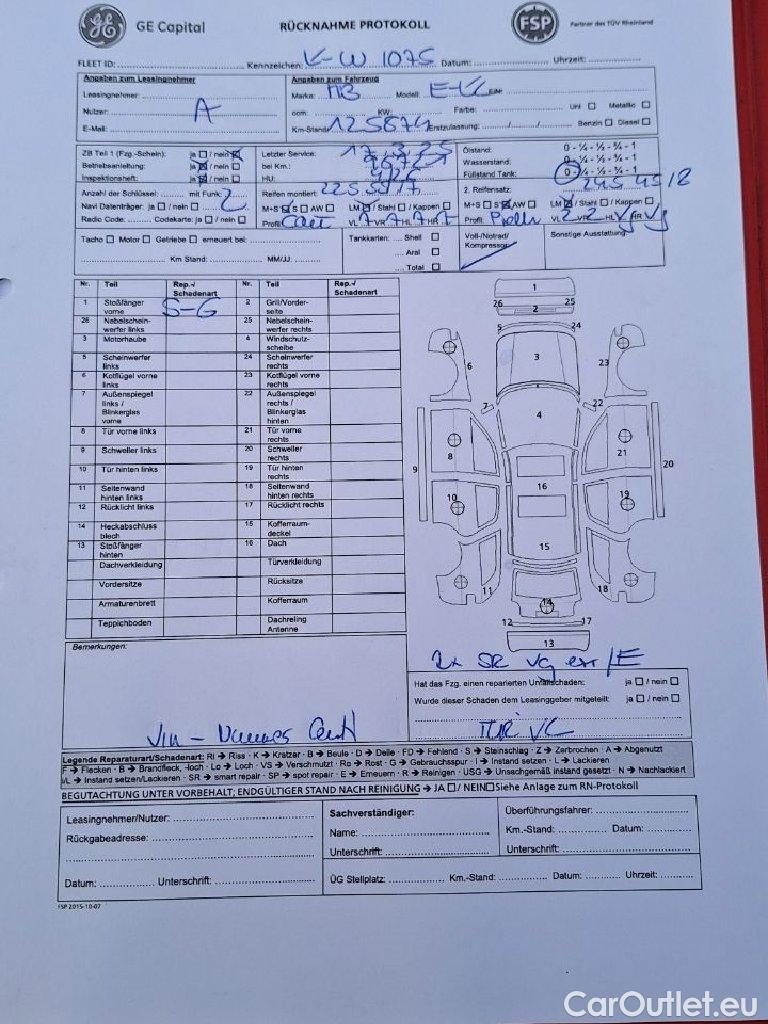 GE Capital
RÜCKNAHME PROTOKOLL
FSP
Partner des TÜV Rheinland
FLEET ID: Kennzeichen: K-W 1075 Datum: Uhrzeit:
Angaben zum Leasingnehmer
Leasingnehmer:
Nutzer: A
E-Mail:
Angaben zum Fahrzeug
Marke: MB Modell: E-Kl FIN:
ccm: KW: Farbe: Uni Metallic
Km-Stand: 125874 Erstzulassung: Benzin Diesel
ZB Teil 1 (Fzg.-Schein): ja / nein
Betriebsanleitung: ja / nein
Inspektionsheft: ja / nein
Letzter Service: 17.3.25
bei Km.:
HU:
Ölstand: 0 - ¼ - ½ - ¾ - 1
Wasserstand: 0 - ¼ - ½ - ¾ - 1
Füllstand Tank: 0 - ¼ - ½ - ¾ - 1
Anzahl der Schlüssel: mit Funk: 2
Navi Datenträger: ja / nein
Radio Code: Codekarte: ja / nein
Reifen montiert: 225 55 17
M+S S AW LM / Stahl / Kappen
Profil: VL 7 VR 7 HL 7 HR 7
2. Reifensatz: 245 45 18
M+S S AW LM / Stahl / Kappen
Profil: VL VR HL HR
Tacho Motor Getriebe erneuert bei:
Km Stand: MM/JJ:
Tankkarten: Shell
Aral
Total
Voll-/Notrad/
Kompressor
Sonstige Ausstattung:
Nr. Teil Rep./ Schadenart Nr. Teil Rep./ Schadenart
1 Stoßfänger vorne S-G 2 Grill/Vorderseite
26 Nebelscheinwerfer links 25 Nebelscheinwerfer rechts
3 Motorhaube 4 Windschutzscheibe
5 Scheinwerfer links 24 Scheinwerfer rechts
6 Kotflügel vorne links 23 Kotflügel vorne rechts
7 Außenspiegel links / Blinkerglas vorne 22 Außenspiegel rechts / Blinkerglas hinten
8 Tür vorne links 21 Tür vorne rechts
9 Schweller links 20 Schweller rechts
10 Tür hinten links 19 Tür hinten rechts
11 Seitenwand hinten links 18 Seitenwand hinten rechts
12 Rücklicht links 17 Rücklicht rechts
14 Heckabschlussblech 15 Kofferraumdeckel
13 Stoßfänger hinten 16 Dach
Dachverkleidung Türverkleidung
Vordersitze Rücksitze
Armaturenbrett Kofferraum
Teppichboden Dachreling Antenne
1
26 2 25
5 24
6 3 23
7 22
4
8 21
9 20
16
10 19
15
11 18
14
12 17
13
Bemerkungen:
Hat das Fzg. einen reparierten Unfallschaden: ja / nein
Wurde dieser Schaden dem Leasinggeber mitgeteilt: ja / nein
Legende Reparaturart/Schadenart: RI → Riss · K → Kratzer · B → Beule · D → Delle · FD → Fehlend · S → Steinschlag · Z → Zerbrochen · A → Abgenutzt
F → Flecken · B → Brandfleck, -loch · Lo → Loch · VS → Verschmutzt · Ro → Rost · G → Gebrauchsspur · I → Instand setzen · L → Lackieren
I/L → Instand setzen/Lackieren · SR → smart repair · SP → spot repair · E → Erneuern · R → Reinigen · USG → Unsachgemäß instand gesetzt · N → Nachlackiert
BEGUTACHTUNG UNTER VORBEHALT; ENDGÜLTIGER STAND NACH REINIGUNG → JA / NEIN Siehe Anlage zum RN-Protokoll
Leasingnehmer/Nutzer:
Rückgabeadresse:
Datum: Unterschrift:
Sachverständiger:
Name:
Unterschrift:
Überführungsfahrer:
Km.-Stand: Datum:
Unterschrift:
ÜG Stellplatz: Km.-Stand: Datum: Uhrzeit:
FSP 2015-10-07
CarOutlet.eu